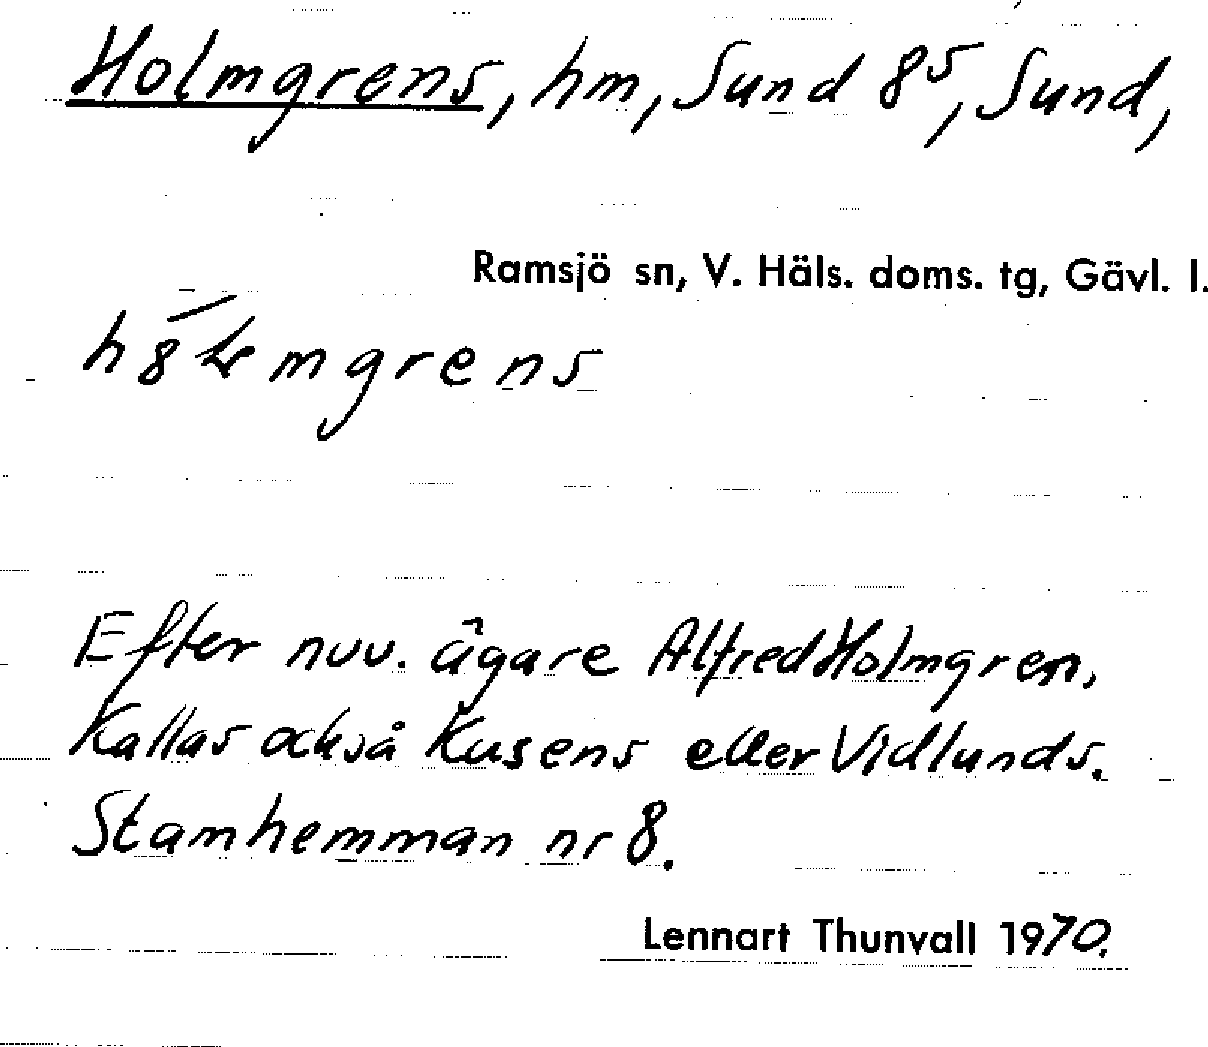 Holmgrens, hm, Sund 8⁵, Sund,
Ramsjö sn, V. Häls. doms. tg, Gävl. l.
Efter nuv. ägare Alfred Holmgren.
Kallas också Kusens eller Vidlunds.
Stamhemman nr 8.
Lennart Thunvall 1970.